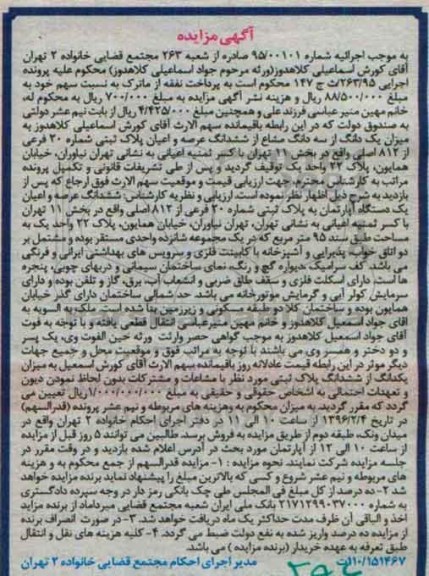 آگهی مزایده
به موجب اجرائیه شماره 95/00101 صادره از شعبه 263 مجتمع قضایی خانواده 2 تهران
آقای کورش اسماعیلی کلاهدوز(ورثه مرحوم جواد اسماعیلی کلاهدوز) محکوم علیه پرونده
اجرایی 263/95ث ج 147 محکوم است به پرداخت نفقه از ماترک به نسبت سهم خود به
مبلغ 88/500/000 ریال و هزینه نشر آگهی مزایده به مبلغ 700/000 ریال به محکوم له،
خانم مهین منیر عباسی فرزند علی و همچنین مبلغ 4/425/000 ریال از بابت نیم عشر دولتی
به صندوق دولت که در این رابطه باقیمانده سهم الارث آقای کورش اسماعیلی کلاهدوز به
میزان یک دانگ از سه دانگ مشاع از ششدانگ عرصه و اعیان پلاک ثبتی شماره 20 فرعی
از 812 اصلی واقع در بخش 11 تهران با کسر ثمنیه اعیانی به نشانی تهران نیاوران، خیابان
همایون، پلاک 22 واحد یک توقیف گردید و پس از طی تشریفات قانونی و تکمیل پرونده
مراتب به کارشناس محترم، جهت ارزیابی قیمت و موقعیت سهم الارث فوق ارجاع که پس از
بازدید به شرح ذیل اظهار نظر نموده است. ارزیابی و نظریه کارشناس: ششدانگ عرصه و اعیان
یک دستگاه آپارتمان به پلاک ثبتی شماره 20 فرعی از 812 اصلی واقع در بخش 11 تهران
با کسر ثمنیه اعیانی به نشانی تهران، تهران نیاوران، خیابان همایون، پلاک 22 واحد یک به
مساحت طبق سند 95 متر مربع که در یک مجموعه شانزده واحدی مستقر بوده و مشتمل بر
دو اتاق خواب، پذیرایی و آشپزخانه با کابینت فلزی و سرویس های بهداشتی ایرانی و فرنگی
می باشد. کف سرامیک، دیواره گچ و رنگ، نمای ساختمان سیمانی و دربهای چوبی، پنجره
ها است، دارای اسکلت فلزی و سقف طاق ضربی و انشعاب آب، برق، گاز و تلفن بوده و دارای
سرمایش کولر آبی و گرمایش موتورخانه می باشد. حد شمالی ساختمان دارای گذر خیابان
همایون بوده و ساختمان کلا دو طبقه مسکونی و زیرزمین بنا شده است. ملک به السویه به
آقای جواد اسمعیل کلاهدوز و خانم مهین منیر عباسی انتقال قطعی یافته و با توجه به فوت
آقای جواد اسمعیل کلاهدوز به موجب گواهی حصر وارثت ورثه حین الفوت وی، یک پسر
و دو دختر و همسر وی می باشند با توجه به مراتب فوق و موقعیت محل و جمیع جهات
دیگر موثر در این رابطه قیمت عادلانه روز باقیمانده سهم الارث آقای کورش اسمعیل به میزان
یکدانگ از ششدانگ پلاک ثبتی مورد نظر با مشاعات و مشترکات بدون لحاظ نمودن دیون
و تعهدات احتمالی به اشخاص حقوقی و حقیقی به مبلغ 1/000/000/000 ریال تعیین می
گردد که مقرر گردید به میزان محکوم به وهزینه های مربوطه و نیم عشر پرونده (قدرالسهم)
در تاریخ 1396/2/4 از ساعت 10 الی 11 در دفتر اجرای احکام خانواده 2 تهران واقع در
میدان ونک، طبقه دوم از طریق مزایده به فروش برسد. طالبین می توانند 5 روز قبل از مزایده
از ساعت 10 الی 12 از آپارتمان مورد بحث در آدرس اعلام شده بازدید و در وقت مقرر در
جلسه مزایده شرکت نمایند. نحوه مزایده : 1- مزایده قدرالسهم از جمع محکوم به و هزینه
های مربوطه و نیم عشر شروع و کسی که بالاترین مبلغ را پیشنهاد نماید برنده مزایده خواهد
شد 2- ده درصد از کل مبلغ فی المجلس طی چک بانکی رمز دار در وجه سپرده دادگستری
به شماره 2171299037000 بانک ملی ایران شعبه مجتمع قضایی میرداماد از برنده مزاید
اخذ و الباقی آن ظرف مدت حداکثر یک ماه دریافت خواهد شد. 3- در صورت انصراف برنده
از مزایده ده درصد واریز شده به نفع دولت ضبط می گردد. 4- کلیه هزینه های نقل و انتقال
طبق تعرفه به عهده خریدار (برنده مزایده ) می باشد.
110/151467ت
مدیر اجرای احکام مجتمع قضایی خانواده 2 تهران